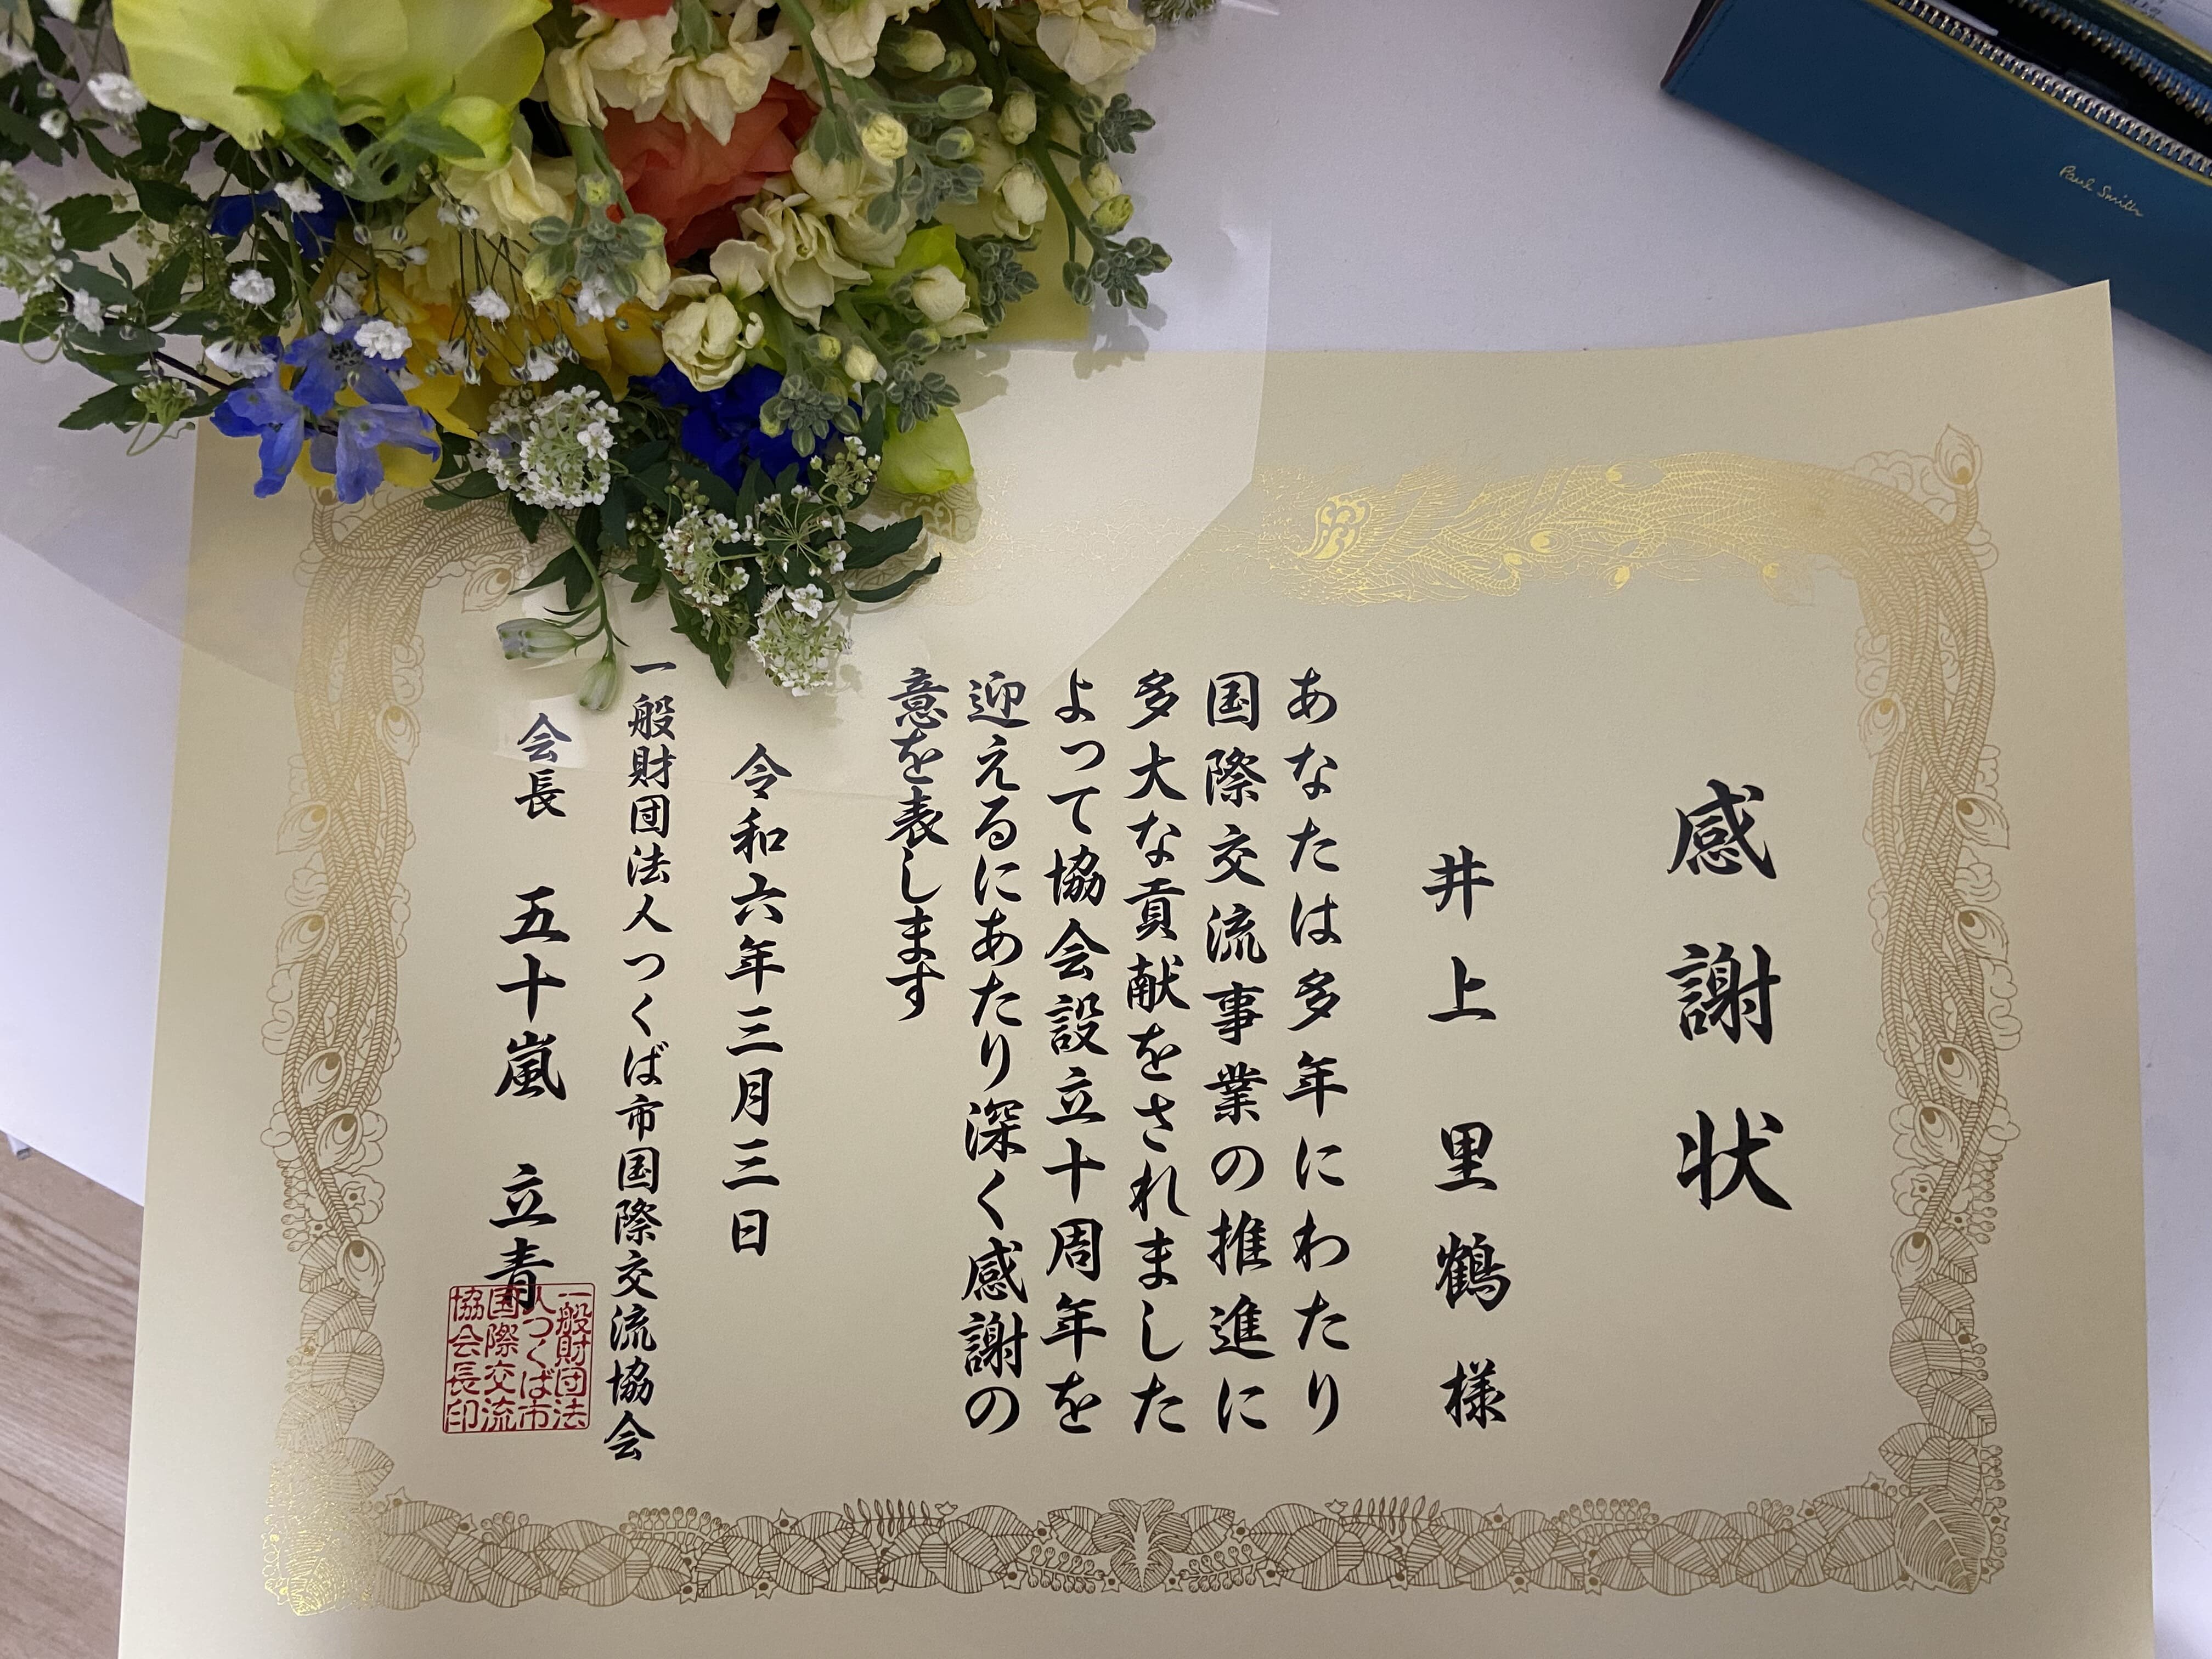 感謝状
井上里鶴様
あなたは多年にわたり
国際交流事業の推進に
多大な貢献をされました
よって協会設立十周年を
迎えるにあたり深く感謝の
意を表します
令和六年三月三日
一般財団法人つくば市国際交流協会
会長 五十嵐 立青
一般財団法
人つくば市
国際交流
協会長印
Paul Smith